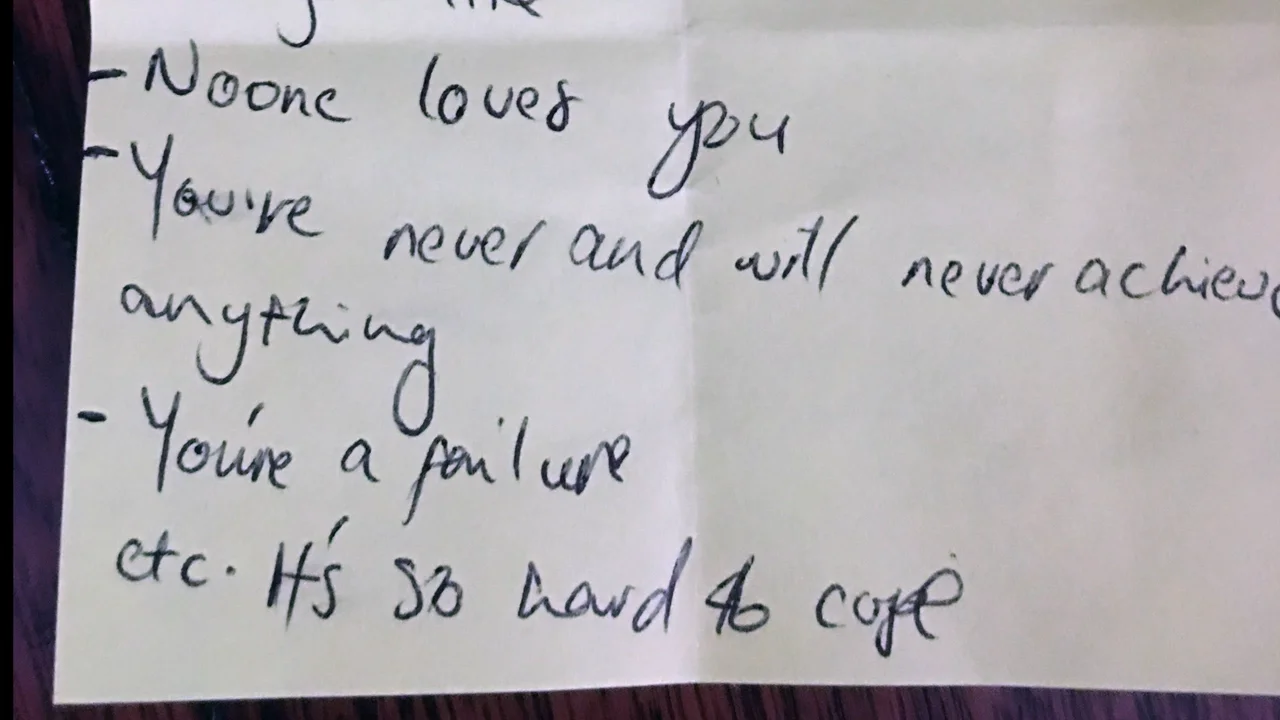 - Noone loves you
- You're never and will never achieve
anything
- You're a failure
etc. It's so hard to cope